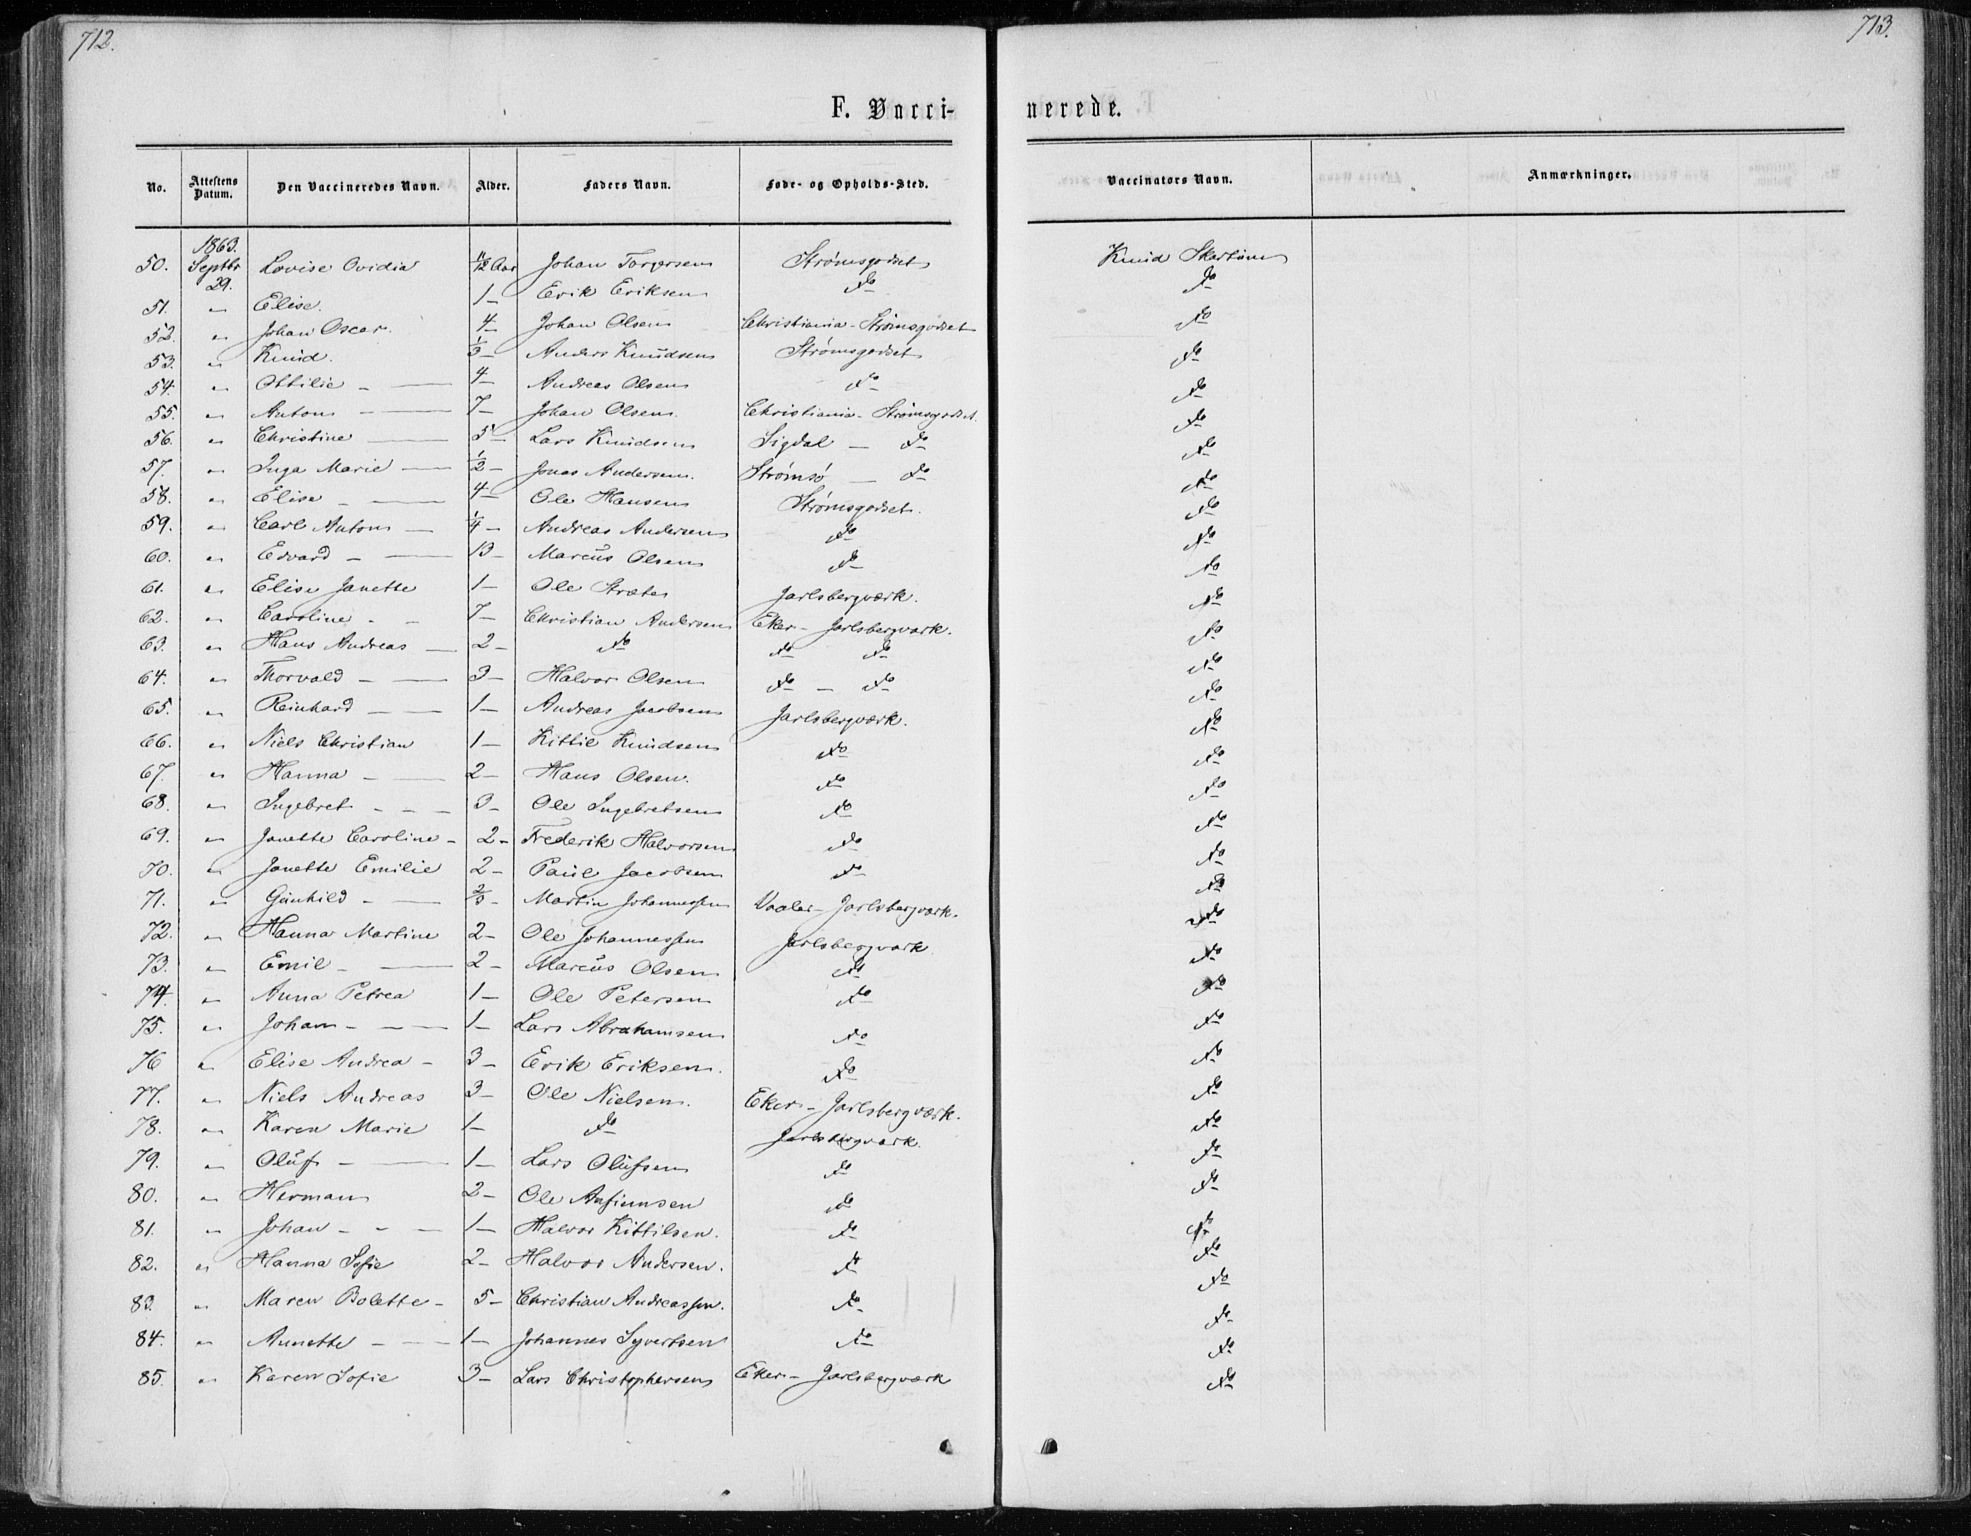 712.
713.
F. Vacci-
nerede.
No. Attestens Datum. Den Vaccineredes Navn. Alder. Faders Navn. Føde- og Opholds-Sted. Vaccinators Navn. Anmærkninger.
1863.
50. Septbr 29. Lovise Ovidia 11/12 Aar Johan Torgersen Strømsgodset Knud
51. " Elise. 1 - Erik Eriksen do do
52. " Johan Oscar. 4 - Johan Olsen Christiania - Strømsgodset do
53. " Knud. Anders Knudsen Strømsgodset do
54. " Ottilie - 4 - Andreas Olsen do do
55. " Anton - 7 - Johan Olsen. Christiania - Strømsgodset. do
56. " Christine 5 - Lars Knudsen Sigdal - do do
57. " Inga Marie 1/2 - Jonas Andersen. Strømsø - do do
58. " Elise - 4 - Ole Hansen Strømsgodset. do
59. " Carl Anton 1/4 - Andreas Andersen do do
60. " Edvard - 13 - Marcus Olsen do do
61. " Elise Janette 1 - Ole Jarlsbergværk. do
62. " Caroline - - 7 - Christian Andersen Eker - Jarlsbergværk. do
63. " Hans Andreas 2 - do do do do
64. " Thorvald - 3 - Halvor Olsen do - do do
65. " Reinhard - 1 - Andreas Jacobsen Jarlsbergværk. do
66. " Niels Christian 1 - Kittil Knudsen do do
67. " Hanna - 2 - Hans Olsen. do do
68. " Ingebret - - - 3 - Ole Ingebretsen do do
69. " Janette Caroline - 2 - Frederik Halvorsen do do
70. " Janette Emilie 2 - Paul Jacobsen do do
71. " Gunhild - Martin Johannessen Vaaler - Jarlsbergværk. do
72. " Hanna Martine 2 - Ole Johannessen Jarlsbergværk. do
73. " Emil - 2 - Marcus Olsen do do
74. " Anna Petrea 1 - Ole Petersen do do
75. " Johan - - 1 - Lars Abrahamsen do do
76 " Elise Andrea - 3 - Erik Eriksen. do do
77. " Niels Andreas 3 - Ole Nielsen. Eker - Jarlsbergværk. do
78. " Karen Marie 1 - do Jarlsbergværk. do
79. " Oluf - 1 - Lars Olufsen do do
80. " Herman 2 - Ole Anfinnsen do do
81. " Johan - - - 1 - Halvor Kittilsen. do do
82. " Hanna Sofie 2 - Halvor Andersen. do do
83. " Maren Bolette - 5 - Christian Andreassen. do do
84. " Annette - 1 - Johannes Syvertsen do do
85. " Karen Sofie 3 - Lars Christophersen Eker - Jarlsbergværk do